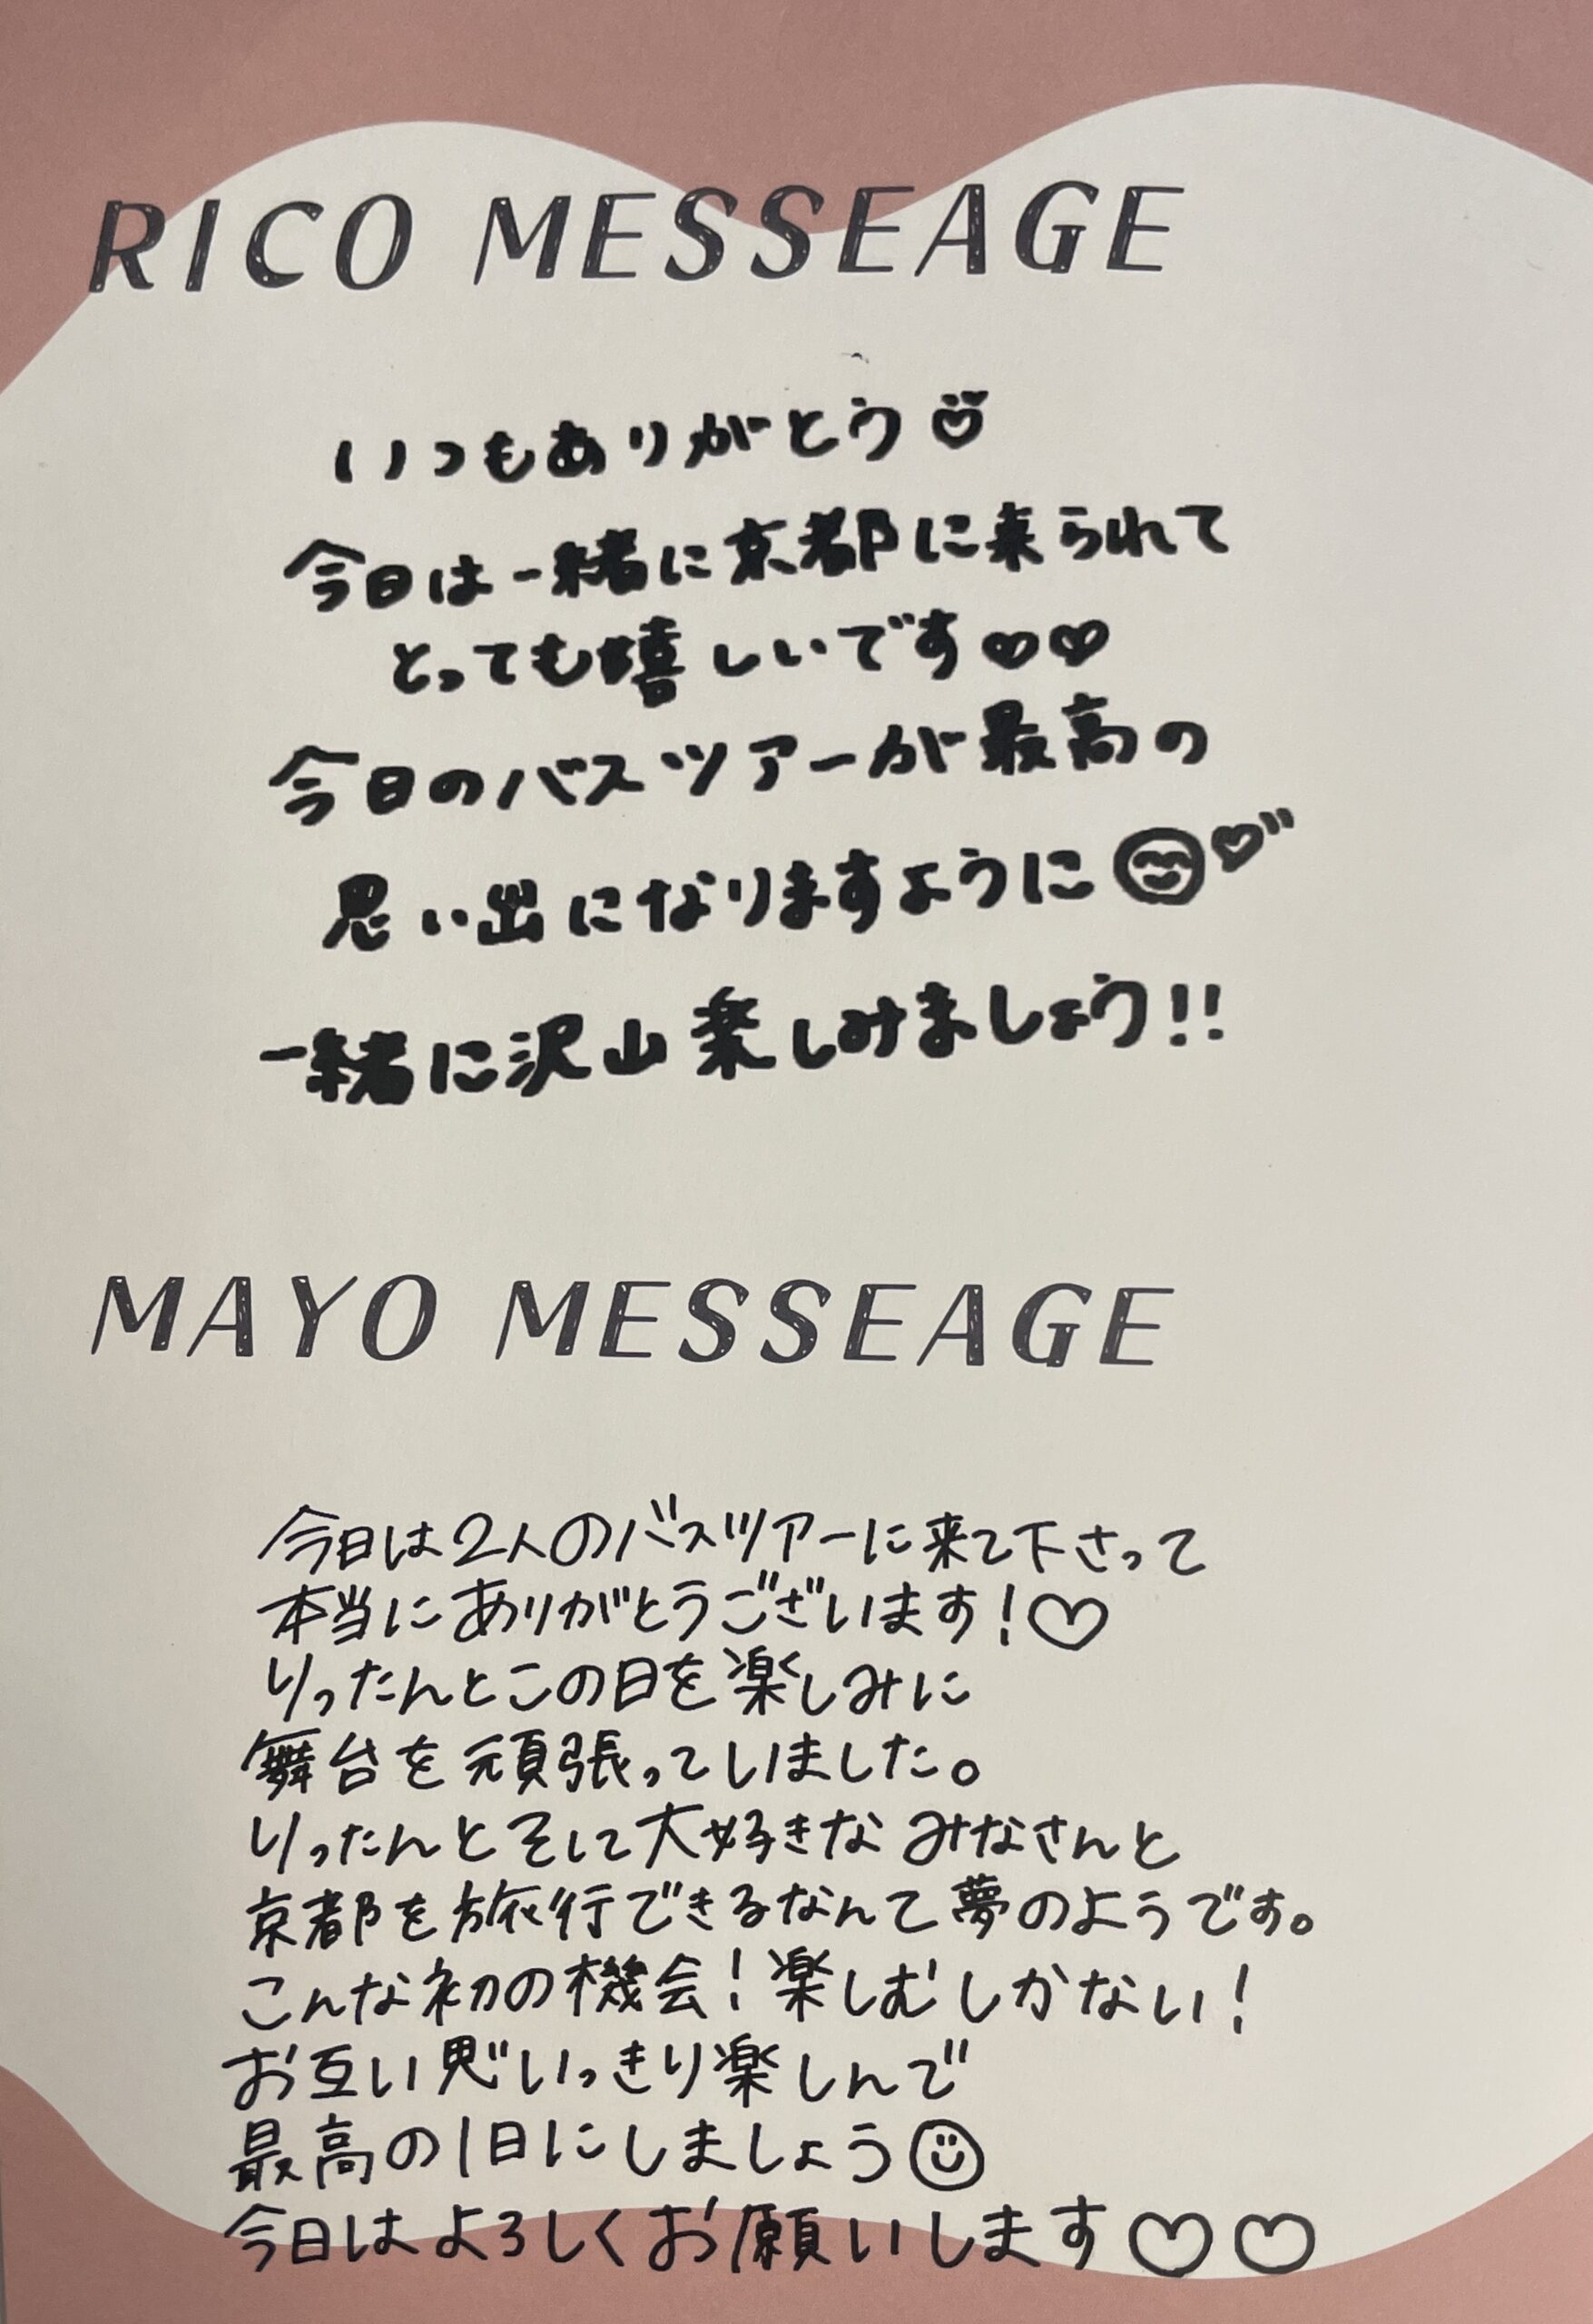 RICO MESSEAGE
いつもありがとう
今日は一緒に京都に来られて
とっても嬉しいです♡♡
今日のバスツアーが最高の
思い出になりますように
一緒に沢山楽しみましょう!!
MAYO MESSEAGE
今日は2人のバスツアーに来て下さって
本当にありがとうございます!♡
りったんとこの日を楽しみに
舞台を頑張っていました。
りったんとそして大好きなみなさんと
京都を旅行できるなんて夢のようです。
こんな初の機会!楽しむしかない!
お互い思いっきり楽しんで
最高の1日にしましょう
今日はよろしくお願いします♡♡